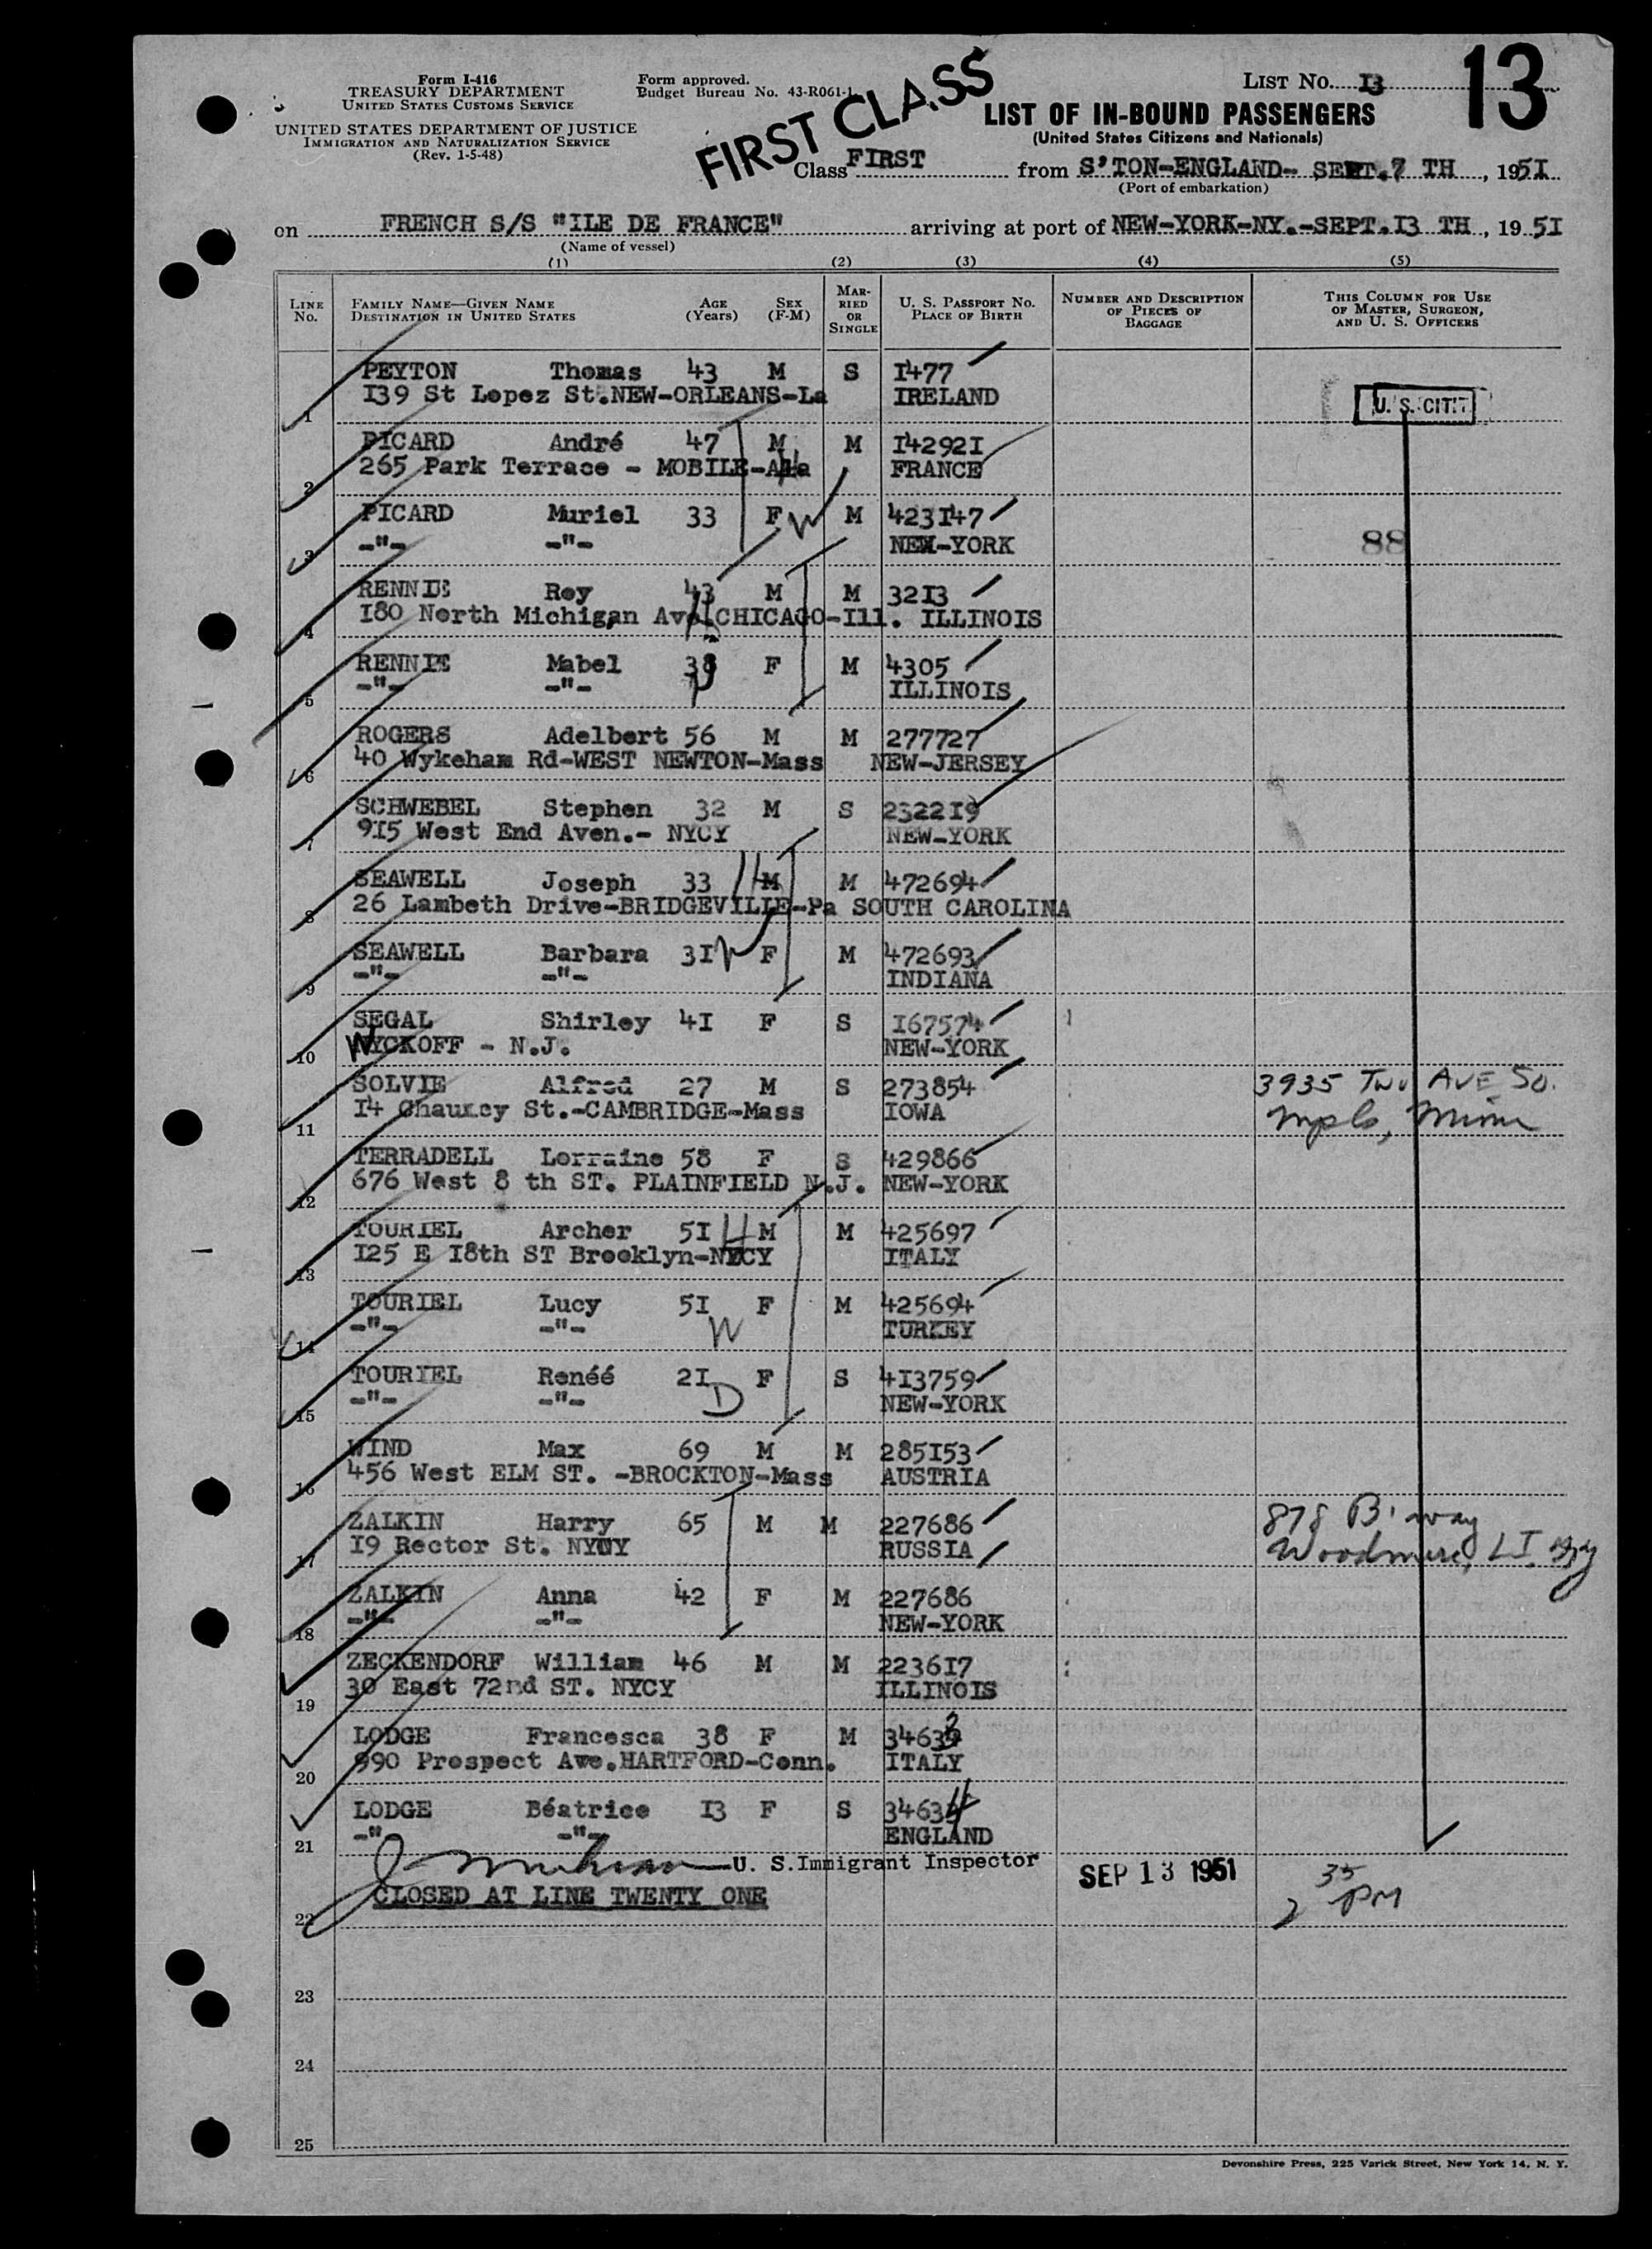 Form I-416
TREASURY DEPARTMENT
UNITED STATES CUSTOMS SERVICE
UNITED STATES DEPARTMENT OF JUSTICE
IMMIGRATION AND NATURALIZATION SERVICE
(Rev. 1-5-48)
Form approved.
Budget Bureau No. 43-R061-1.
FIRST CLASS
LIST No. 13
13
LIST OF IN-BOUND PASSENGERS
(United States Citizens and Nationals)
Class FIRST from S'TON-ENGLAND- SEPT.7 TH, 1951
(Port of embarkation)
on FRENCH S/S "ILE DE FRANCE" arriving at port of NEW-YORK-NY.-SEPT.I3 TH, 1951
(Name of vessel)
(1) (2) (3) (4) (5)
LINE No. FAMILY NAME—GIVEN NAME DESTINATION IN UNITED STATES AGE (Years) SEX (F-M) MARRIED OR SINGLE U. S. PASSPORT No. PLACE OF BIRTH NUMBER AND DESCRIPTION OF PIECES OF BAGGAGE THIS COLUMN FOR USE OF MASTER, SURGEON, AND U. S. OFFICERS
PEYTON Thomas 43 M S I477
1 I39 St Lopez St.NEW-ORLEANS-La IRELAND U. S. CIT
PICARD André 47 M M I4292I
2 265 Park Terrace - MOBILE-Ala FRANCE H
PICARD Muriel 33 F W M 423I47
3 -"- -"- NEW-YORK 88
RENNIE Roy 43 M M 32I3
4 I80 North Michigan Ave CHICAGO-Ill. ILLINOIS
RENNIE Mabel 38 F M 4305
5 -"- -"- ILLINOIS
ROGERS Adelbert 56 M M 277727
6 40 Wykeham Rd-WEST NEWTON-Mass NEW-JERSEY
SCHWEBEL Stephen 32 M S 2322I9
7 9I5 West End Aven.- NYCY NEW-YORK
SEAWELL Joseph 33 H M M 472694
8 26 Lambeth Drive-BRIDGEVILLE-Pa SOUTH CAROLINA
SEAWELL Barbara 3I W F M 472693
9 -"- -"- INDIANA
SEGAL Shirley 4I F S I67574
10 WYCKOFF - N.J. NEW-YORK
SOLVIE Alfred 27 M S 273854 3935 Two AVE SO.
11 I4 Chauncy St.-CAMBRIDGE-Mass IOWA Mpls, Minn
TERRADELL Lorraine 58 F S 429866
12 676 West 8 th ST. PLAINFIELD N.J. NEW-YORK
TOURIEL Archer 5I H M M 425697
13 I25 E I8th ST Brooklyn-NYCY ITALY
TOURIEL Lucy 5I F M 425694
14 -"- -"- W TURKEY
TOURIEL Renéé 2I F S 4I3759
15 -"- -"- D NEW-YORK
WIND Max 69 M M 285I53
16 456 West ELM ST. -BROCKTON-Mass AUSTRIA
ZALKIN Harry 65 M M 227686 878 B'way
17 I9 Rector St. NYCY RUSSIA Woodmere, L I NY
ZALKIN Anna 42 F M 227686
18 -"- -"- NEW-YORK
ZECKENDORF William 46 M M 2236I7
19 30 East 72nd ST. NYCY ILLINOIS
LODGE Francesca 38 F M 34633
20 990 Prospect Ave.HARTFORD-Conn. ITALY
LODGE Béatrice I3 F S 34634
21 -"- -"- ENGLAND
U. S.Immigrant Inspector SEP 13 1951 2 35 PM
22 CLOSED AT LINE TWENTY ONE
23
24
25
Devonshire Press, 225 Varick Street, New York 14, N. Y.